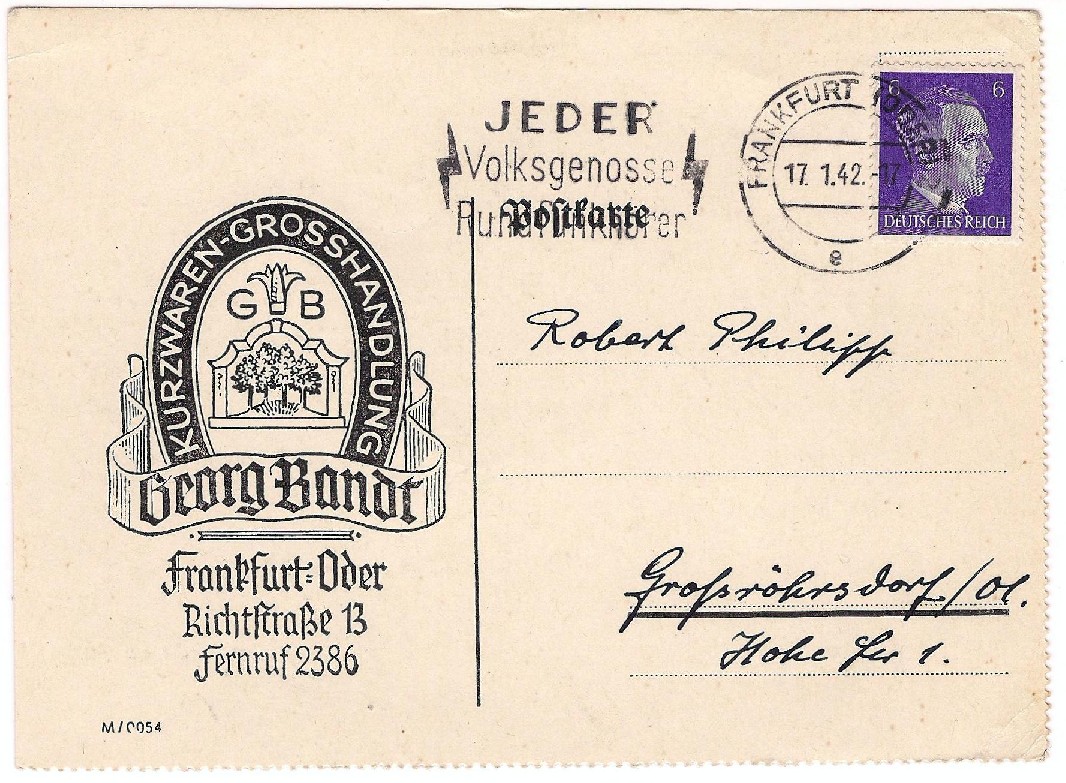 JEDER
Volksgenosse
Rundfunkhörer
Postkarte
FRANKFURT (ODER)
17. 1.42.-17
e
6 6
DEUTSCHES REICH
KURZWAREN-GROSSHANDLUNG
G B
Georg Bandt
Frankfurt-Oder
Richtstraße 13
Fernruf 2386
M/0054
Robert Philipp
Großröhrsdorf/Ol.
Hohe 1.